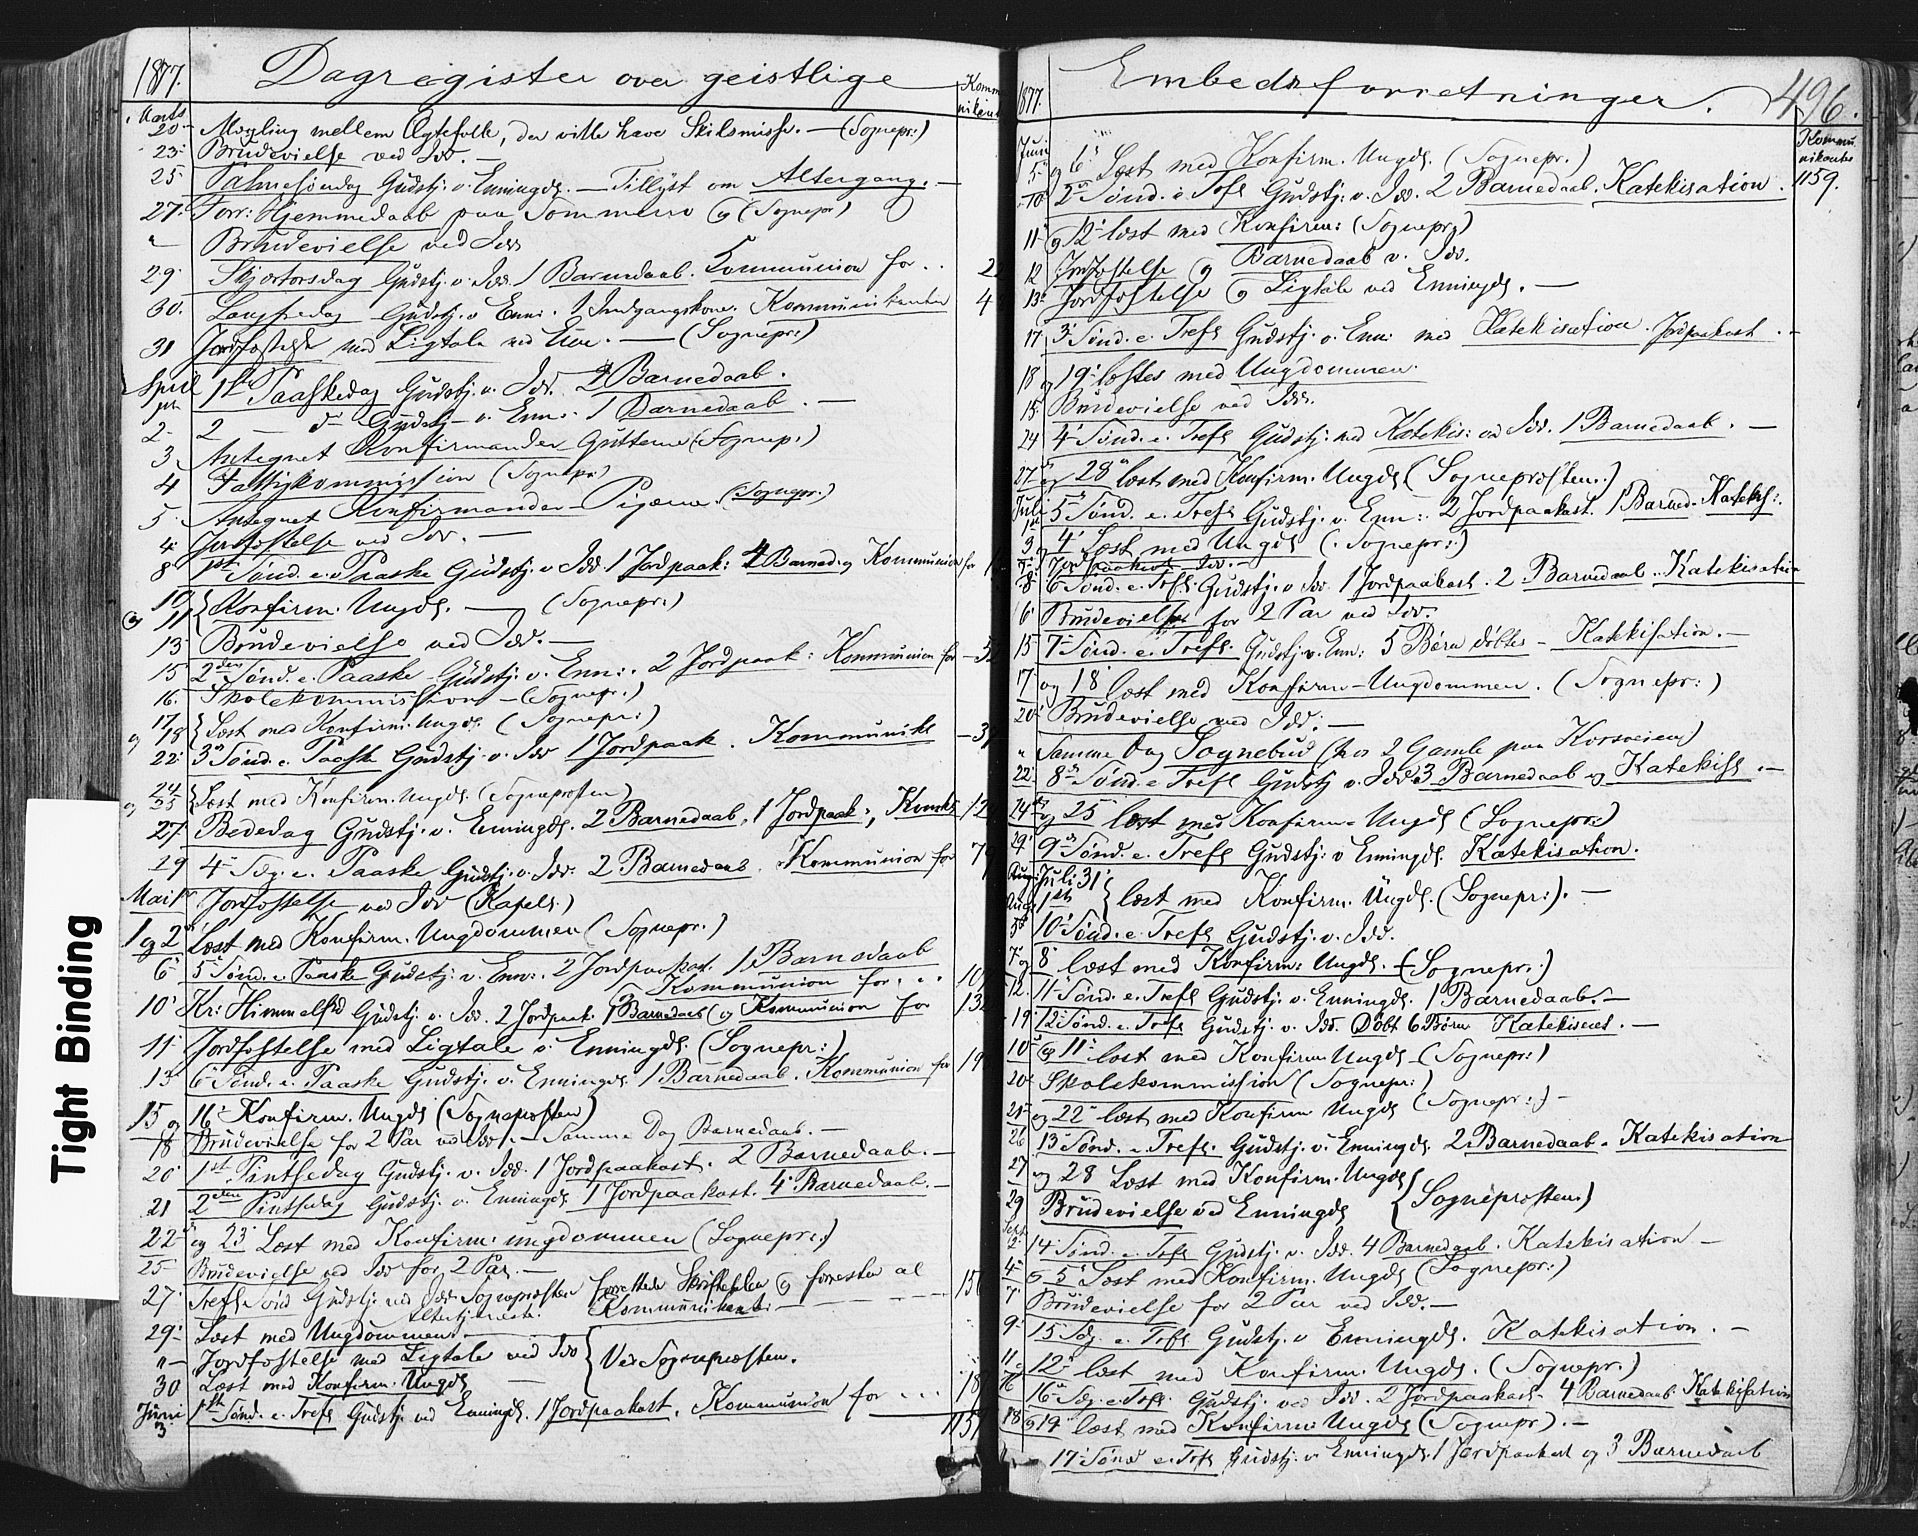 1877. Dagregister over geistlige
Kommunikanter
Marts
20 Mægling mellem Ægtefolk, der ville have Skilsmisse. — (Sognepr:)
23. Brudevielse ved Idd. —
25 Palmesöndag Gudstj. v. Enningdl. — Tillyst om Altergang. —
27. Forr: Hjemmedaab paa Sommerro (Sognepr)
" Brudevielse ved Idd
29. Skjærtorsdag Gudstj. v. Idd. 1 Barnedaab. Communion for . . 2
30. Langfredag Gudstj. v Enn. 1 Indgangskone. Kommunikanter 4
31 Jordfæstelse med Ligtale ved Enn. — (Sognepr:)
April
1ste Paaskedag Gudstj. v. Idd. 2 Barnedaab.
2 2 — d— Gudstj. v. Enn. 1 Barnedaab. —
3 Antegnet Konfirmander Gutterne (Sognep:)
4 Fattigkommission (Sognepr)
5. Antegnet Konfirmander Pigerne. (Sognepr.)
4. Jordfæstelse ved Idd. —
8 1st Sönd. e. Paaske Gudstj. v Idd 1 Jordpaak: 4 Barned. og Kommunion for
10 og 11 Konfirm. Ungdl. — (Sognepr:)
13 Brudevielse ved Idd. —
15 2den Sönd. e. Paaske Gudstj. v. Enn:. 2 Jordpaak: Kommunion for — 5
16. Skolekommission — (Sognepr.)
17 og 18 Læst med Konfirm. Ungdl. (Sognepr:)
22. 3die Sönd. e. Paaske Gudstj. v. Idd 1 Jordpaak. Kommunikt — 3
24 og 25 Læst med Konfirm. Ungdl. (Sogneprosten)
27 Bededag Gudstj. v. Enningdl. 2 Barnedaab, 1 Jordpaak:, Komk. 12
29 4 Søg. e. Paaske Gudstj. v. Idd. 2 Barnedaab. Kommunion for 7
Mai 1st Jordfæstelse ved Idd (Kapell.)
1 og 2 Læst med Konfirm. Ungdommen (Sognepr.)
6 5 Sönd. e. Paaske Gudstj. v. Enn:. 2 Jordpaakast. 1 Barnedaab
Kommunion for. . . 10
10 Kr: Himmelfd Gudstj. v. Idd. 2 Jordpaak. 1 Barnedaab og Kommunion for 13
11 Jordfæstelse med Ligtale v. Enningdl. (Sognepr:)
13 6 Sönd. e. Paaske Gudstj. v. Enningdl. 1 Barnedaab. Kommunion for 19
15 og 16 Konfirm. Ungdl (Sogneprosten)
18 Brudevielse for 2 Par ved Idd. — Samme Dag Barnedaab. —
20 1st Pintsedag Gudstj. v. Idd. 1 Jordpaakast. 2 Barnedaab. —
21 2den Pintsedag Gudstj. v. Enningdl. 1 Jordpaakast. 4 Barnedaab. —
22 og 23 Læst med Konfirm: ungdommen (Sognepr:)
25 Brudevielse ved Idd for 2 Par. —
27. Trefl. Sönd Gudstj. ved Idd Sogneprosten forrettede Skriftetalen og
Altertjeneste. Kommunikant: — 15
29. Læst med Ungdommen.
" Jordfæstelse med Ligtale ved Idd
30 Læst med Konfirm. Ungdl } Ved Sogneprosten.
Juni
3 1st Sönd. e. Trefl Gudstj. ved Enningdl. 1 Jordpaakast. Kommunion for . . . 18
1159
1877. Embedsforretninger. 496.
Kommunikanter
1159.
Juni
5 og 6 Læst med Konfirm. Ungdl. (Sognepr.)
10 2 Sönd. e. Trefl Gudstj. v. Idd. 2 Barnedaab. Katekisation.
11 og 12 læst med Konfirm: (Sognepr)
12 Jordfæstelse og Barnedaab v. Idd.
13 Jordfæstelse og Ligtale ved Enningdl. —
17 3 Sönd. e. Trefl Gudstj. v. Enn: med Katekisation. Jordpaakast. —
18 og 19 læstes med Ungdommen.
15 Brudevielse ved Idd.
24 4 Sönd. e. Trefl Gudstj. med Katekis: ved Idd. 1 Barnedaab. —
27 og 28 læst med Konfirm. Ungdl (Sogneprosten.)
Juli
1st 5 Sönd. e. Trefl Gudstj. v. Enn:. 2 Jordpaakast. 1 Barned. Katekis:.
3 og 4 Læst med Ungdl (Sognepr:)
5 Jordpaakast Idd. —
8 6 Sönd. e. Trefl. Gudstj. v Idd. 1 Jordpaakast. 2 Barnedaab. Katekisation
6 Brudevielse for 2 Par ved Idd.
15 7 Sönd. e. Trefl. Gudstj. v. Enn: 5 Börn döbtes — Katekisation. —
17 og 18 læst med Konfirm-Ungdommen. (Sognepr:)
20 Brudevielse ved Idd. —
" Samme Dag Sognebud (hos 2 Gamle paa Korsveien)
22 8 Sönd. e. Trefl Gudstj v. Idd. 3 Barnedaab og Katekis. —
24 og 25 læst med Konfirm. Ungdl (Sognepr:)
29 9 Sönd. e. Trefl Gudstj: v Enningdl. Katekisation.
Juli 31
Aug 1st } læst med Konfirm. Ungdl. (Sognepr:). —
5 10 Sönd. e. Trefl Gudstj. v. Idd.
7 og 8 læst med Konfirm: Ungdl. — (Sognepr:)
12. 11 Sönd. e. Trefl Gudstj. v. Enningdl. 1 Barnedaab. —
19 12 Sönd. e. Trefl Gudstj. v. Idd. Döbt 6 Börn Katekiseret. —
10 og 11 læst med Konfirm Ungdl — (Sognepr:)
20 Skolekommission (Sognepr:)
21 og 22 læst med Konfirm Ungdl (Sognepr:) —
26 13 Sönd. e. Trefl. Gudstj. v. Enningdl. 2 Barnedaab. Katekisation
27 og 28 Læst med Konfirm. Ungdl
29 Brudevielse ved Enningdl } (Sogneprosten)
Sept
2 14 Sönd. e. Trefl Gudstj. v. Idd. 4 Barnedaab. Katekisation —
4 og 5 Læst med Konfirm. Ungdl (Sognepr:)
7 Brudevielse for 2 Par ved Idd. —
9 15 Søg. e. Trefl Gudstj. v Enningdl. Katekisation. —
11 og 12 læst med Konfirm. Ungdl. (Sognepr.)
16 16 Søg. e. Trefl. Gudstj. ved Idd. 2 Jordpaakast. 4 Barnedaab. Katekisation
18 og 19 læst med Konfirm: Ungdl (Sognepr). —
17 Sönd e. Trefl Gudstj. v Enningdl. 1 Jordpaakast og 3 Barnedaab
Tight Binding